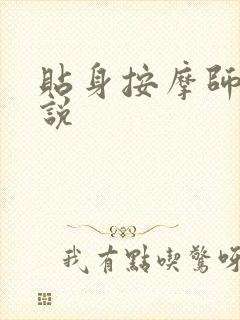 貼身按摩師
説
我有點喫驚呀